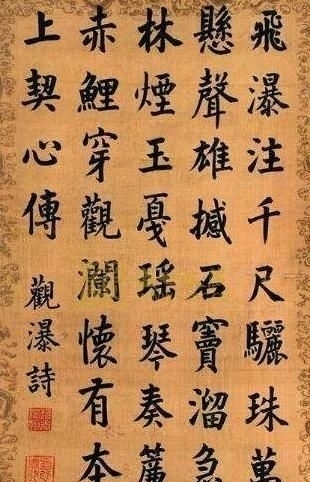 飛瀑注千尺驪珠萬
懸聲雄撼石竇溜急
林煙玉戛瑤琴奏簾
赤鯉穿觀瀾懷有本
上契心傳
觀瀑詩